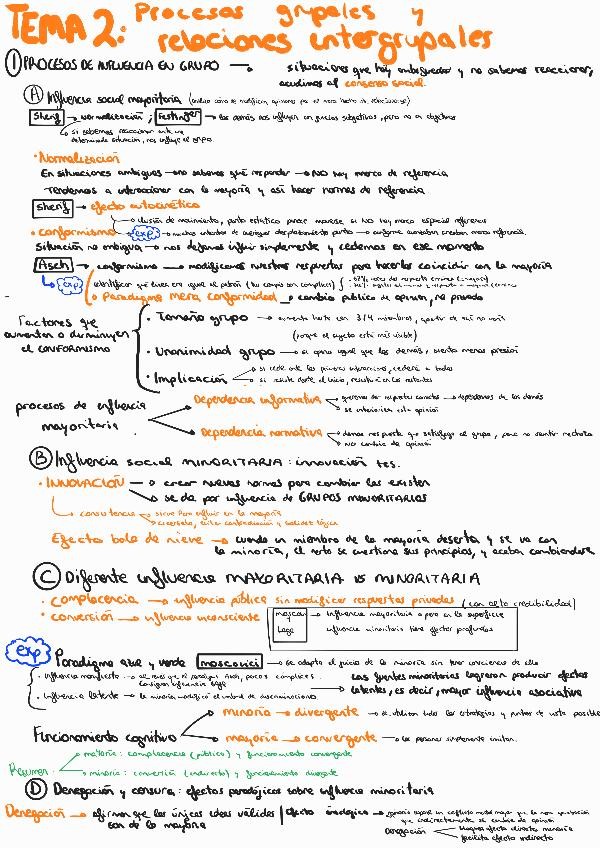 TEMA 2: Procesos grupales y
relaciones intergrupales
① PROCESOS DE INFLUENCIA EN GRUPO → situaciones que hay ambigüedad y no sabemos reaccionar,
acudimos al consenso social.
Ⓐ Influencia social mayoritaria
Sherif → normalización ; Festinger → los demás nos influyen en juicios subjetivos, pero no en objetivos
si sabemos reaccionar ante una
determinada situación, no influye el grupo
· Normalización
En situaciones ambiguas → no sabemos qué responder → NO hay marco de referencia
Tendemos a interaccionar con la mayoría y así hacer normas de referencia.
Sherif → efecto autocinético
ilusión de movimiento, punto estático parece moverse si NO hay marco espacial referencia
· conformismo exp
Situación no ambigua → nos dejamos influir simplemente y cedemos en ese momento
Asch → conformismo → modificamos nuestras respuestas para hacerlas coincidir con la mayoría
exp identificar que línea era igual al patrón
Paradigma mera conformidad → cambio público de opinión, no privado
Factores que
aumentan o disminuyen
el conformismo
· Tamaño grupo → aumenta hasta con 3/4 miembros, a partir de ahí no varía
(porque el sujeto está más visible)
· Unanimidad grupo → si opina igual que los demás, sienta menos presión
· Implicación → si cede ante las primeras interacciones, cederá a todas
si resiste desde el inicio, resistirá en las restantes
procesos de influencia
mayoritaria
Dependencia informativa → queremos dar respuestas correctas → dependemos de los demás
se interioriza esta opinión
Dependencia normativa → damos respuesta que satisfaga al grupo, para no sentir rechazo
No cambia de opinión
Ⓑ Influencia social MINORITARIA: innovación
· INNOVACIÓN → crear nuevas normas para cambiar las existen
se da por influencia de GRUPOS MINORITARIOS
consistencia → sirve para influir en la mayoría
coherencia, evitar contradicción y solidez lógica
Efecto bola de nieve → cuando un miembro de la mayoría deserta y se va con
la minoría, el resto se cuestiona sus principios, y acaban cambiándose
Ⓒ Diferente influencia MAYORITARIA VS MINORITARIA
· complacencia → influencia pública sin modificar respuestas privadas (con alta credibilidad)
· conversión → influencia inconsciente
Moscovici y Lage
influencia mayoritaria opera en la superficie
influencia minoritaria tiene efectos profundos
exp Paradigma azul y verde Moscovici → se adapta el juicio de la minoría sin tener conciencia de ello
· Influencia manifiesta → al revés que el paradigma Asch, pocos cómplices.
consiguen influencia baja
· Influencia latente → la minoría modificó el umbral de discriminación.
Las fuentes minoritarias lograron producir efectos
latentes, es decir, mayor influencia asociativa
Funcionamiento cognitivo
minoría → divergente → se utilizan todas las estrategias y puntos de vista posible
mayoría → convergente → las personas simplemente imitan.
Resumen
mayoría: complacencia (público) y funcionamiento convergente
minoría: conversión (indirecto) y funcionamiento divergente
Ⓓ Denegación y censura: efectos paradójicos sobre influencia minoritaria
Denegación → afirman que las únicas ideas válidas
son de la mayoría
Denegación → bloquea efecto directo minoría
facilita efecto indirecto